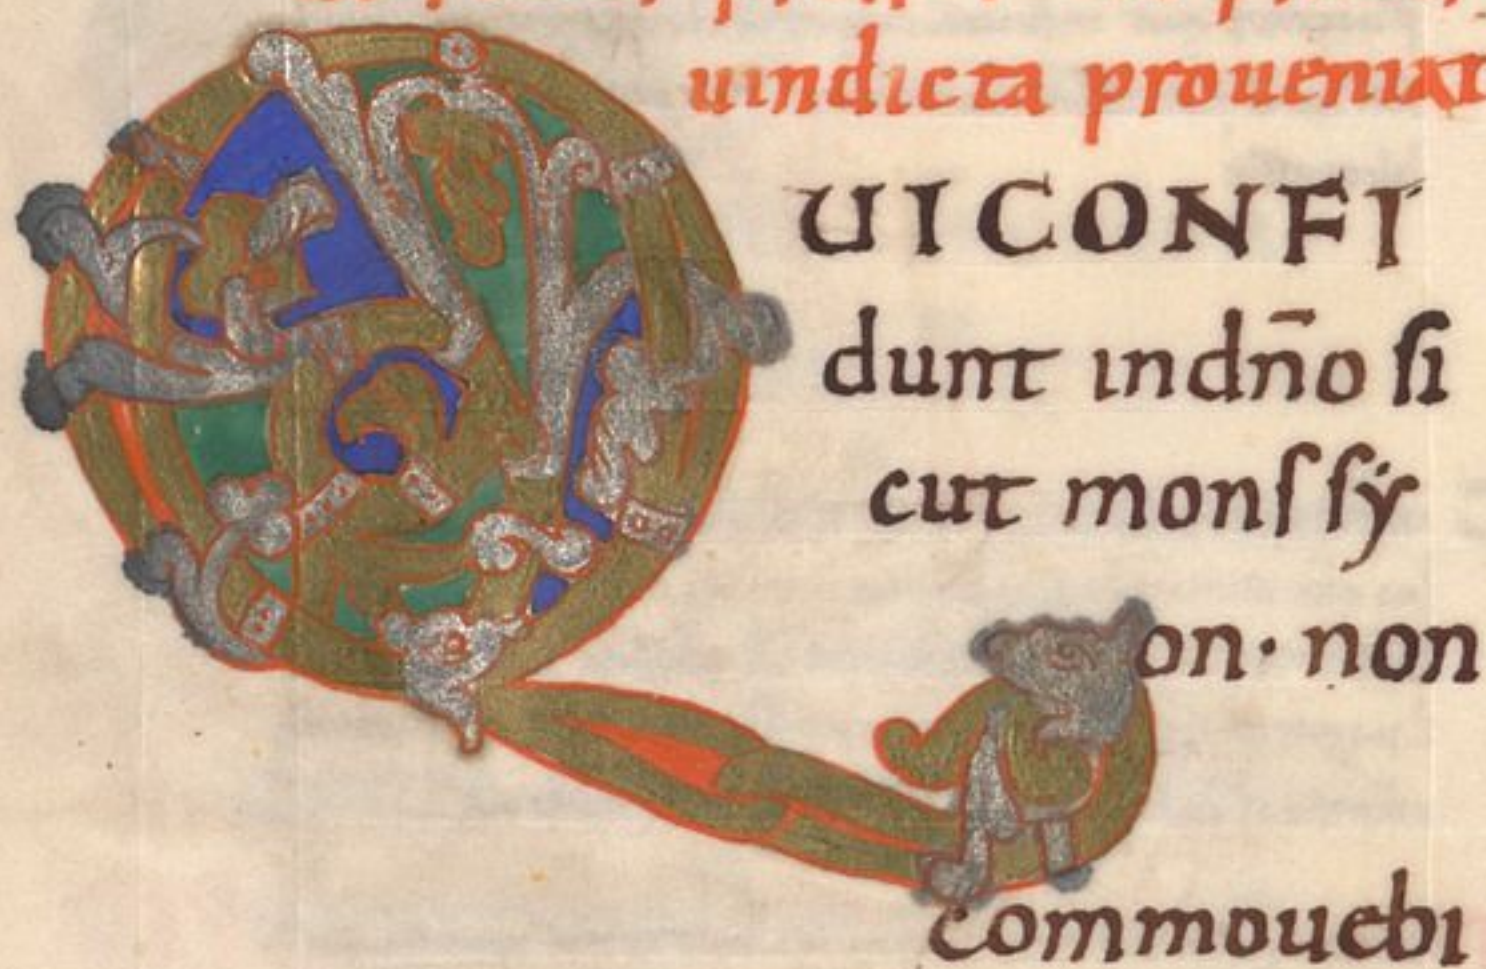 uindicta proueniat
QUICONFI
dunt indn̄o ſi
cut monſ ſẏ
on · non
commouebi